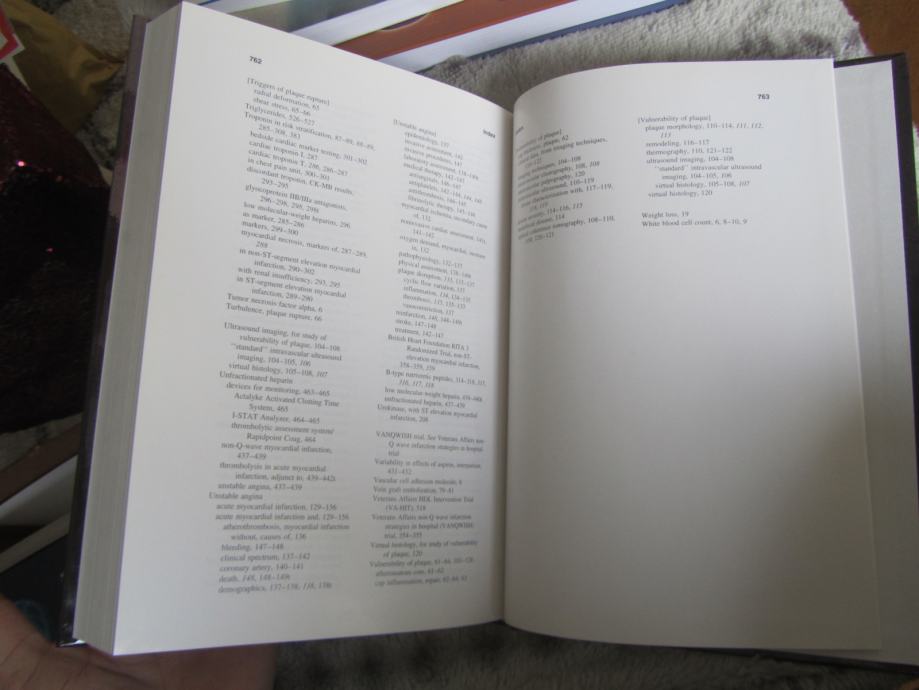 762
[Triggers of plaque rupture]
radial deformation, 65
shear stress, 65–66
Triglycerides, 526–527
Troponin in risk stratification, 87–89, 88–89,
285–308, 383
bedside cardiac marker testing, 301–302
cardiac troponin I, 287
cardiac troponin T, 286, 286–287
in chest pain unit, 300–301
discordant troponin, CK-MB results,
293–295
glycoprotein IIB/IIIa antagonists,
296–298, 295, 298t
low molecular-weight heparins, 296
as marker, 285–286
markers, 299–300
myocardial necrosis, markers of, 287–289,
288
in non-ST-segment elevation myocardial
infarction, 290–302
with renal insufficiency, 293, 295
in ST-segment elevation myocardial
infarction, 289–290
Tumor necrosis factor alpha, 6
Turbulence, plaque rupture, 66
Ultrasound imaging, for study of
vulnerability of plaque, 104–108
"standard" intravascular ultrasound
imaging, 104–105, 106
virtual histology, 105–108, 107
Unfractionated heparin
devices for monitoring, 463–465
Actalyke Activated Clotting Time
System, 465
I-STAT Analyzer, 464–465
thrombolytic assessment system/
Rapidpoint Coag, 464
non-Q-wave myocardial infarction,
437–439
thrombolysis in acute myocardial
infarction, adjunct to, 439–442t
unstable angina, 437–439
Unstable angina
acute myocardial infarction, 129–156
acute myocardial infarction and, 129–156
atherothrombosis, myocardial infarction
without, causes of, 136
bleeding, 147–148
clinical spectrum, 137–142
coronary artery, 140–141
death, 148, 148–149t
demographics, 137–138, 138, 139t
Index
[Unstable angina]
epidemiology, 137
invasive assessment, 142
invasive procedures, 147
laboratory assessment,
medical therapy, 142–147
antianginals, 146–147
antiplatelets, 142–144, 144, 146t
antithrombins, 144–145
fibrinolytic therapy, 145–146
myocardial ischemia, secondary cause
of, 132
noninvasive cardiac assessment, 140t,
141–142
oxygen demand, myocardial, increase
in, 132
pathophysiology, 132–137
physical assessment,
plaque disruption, 133, 135–137
cyclic flow variation, 135
inflammation, 134, 134–135
thrombosis, 135, 135–137
vasoconstriction, 137
reinfarction, 148, 148–149t
stroke, 147–148
treatment, 142–147
British Heart Foundation RITA 3
Randomized Trial, non-ST-
elevation myocardial infarction,
358–359, 359
B-type natriuretic peptides, 114–118, 115,
116, 117, 118
low molecular weight heparin,
unfractionated heparin, 437–439
Urokinase, with ST elevation myocardial
infarction, 208
VANQWISH trial. See Veterans Affairs non-
Q wave infarction strategies in hospital
trial
Variability in effects of aspirin, interpatient,
431–432
Vascular cell adhesion molecule, 6
Vein graft embolization, 79–81
Veterans Affairs HDL Intervention Trial
(VA-HIT), 518
Veterans Affairs non-Q wave infarction
strategies in hospital (VANQWISH)
trial, 354–355
Virtual histology, for study of vulnerability
of plaque, 120
Vulnerability of plaque, 61–64, 101–128
atheromatous core, 61–62
cap inflammation, repair, 62–64, 63
763
[Vulnerability of plaque]
plaque morphology, 110–114, 111, 112,
113
remodeling, 116–117
thermography, 110, 121–122
ultrasound imaging, 104–108
"standard" intravascular ultrasound
imaging, 104–105, 106
virtual histology, 105–108, 107
virtual histology, 120
Weight loss, 19
White blood cell count, 6, 8–10, 9